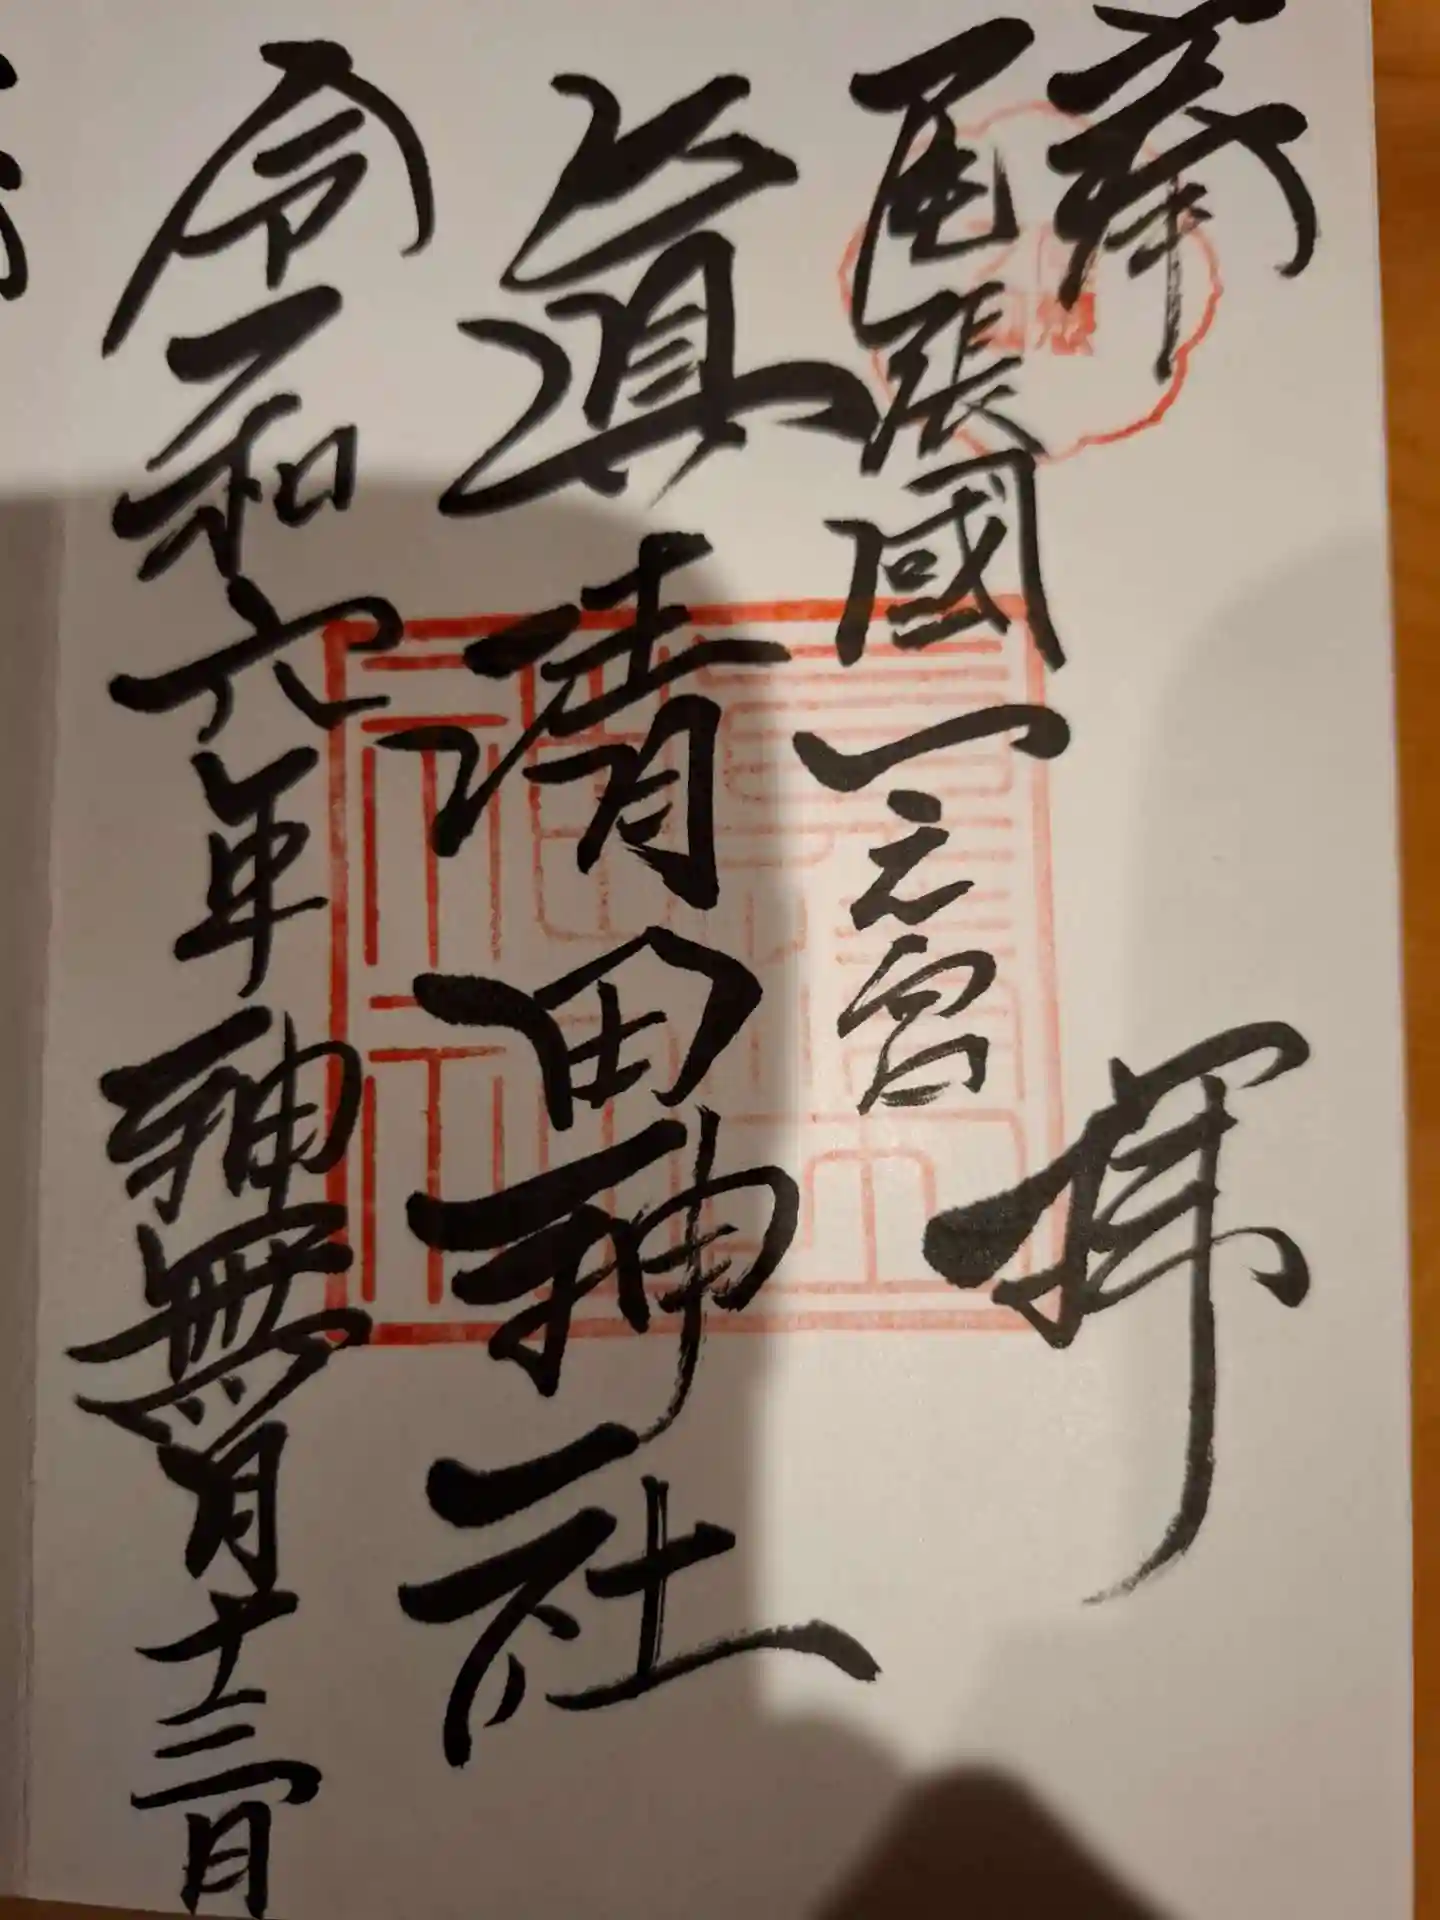 奉 拝
尾張國一之宮
真清田神社
令和六年神無月十三日